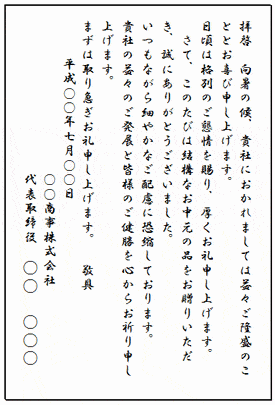 拝啓　向暑の候、貴社におかれましては益々ご隆盛のこ
ととお喜び申し上げます。
日頃は格別のご懇情を賜り、厚くお礼申し上げます。
さて、このたびは結構なお中元の品をお贈りいただ
き、誠にありがとうございました。
いつもながら細やかなご配慮に恐縮しております。
貴社の益々のご発展と皆様のご健勝を心からお祈り申し
上げます。
まずは取り急ぎお礼申し上げます。　敬具
平成〇〇年七月〇〇日
〇〇商事株式会社
代表取締役　〇〇　〇〇〇